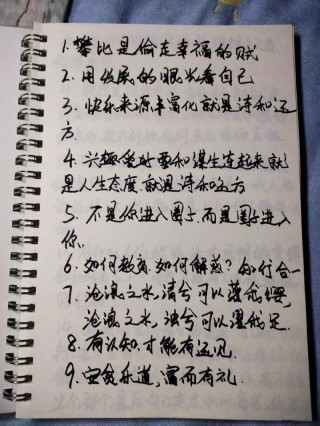 1.攀比是偷走幸福的贼
2.用发展的眼光看自己
3.快乐来源丰富化就是诗和远
方
4.兴趣爱好要和谋生连起来就
是人生态度.就是诗和远方
5.不是你进入圈子.而是圈子进入
你.
6.如何教育.如何解惑?知行合一
7.沧浪之水,清兮可以濯我缨,
沧浪之水,浊兮可以濯我足.
8.有认知.才能有远见.
9.安贫乐道,富而有礼.